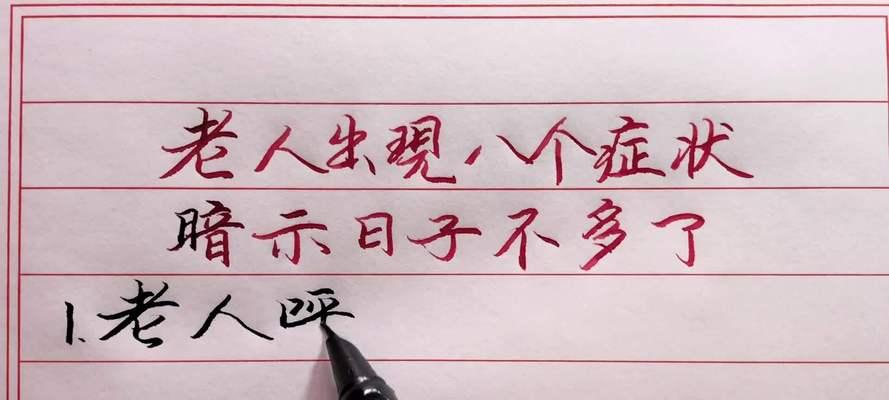 老人出現八个症状
暗示日子不多了
1.老人呼